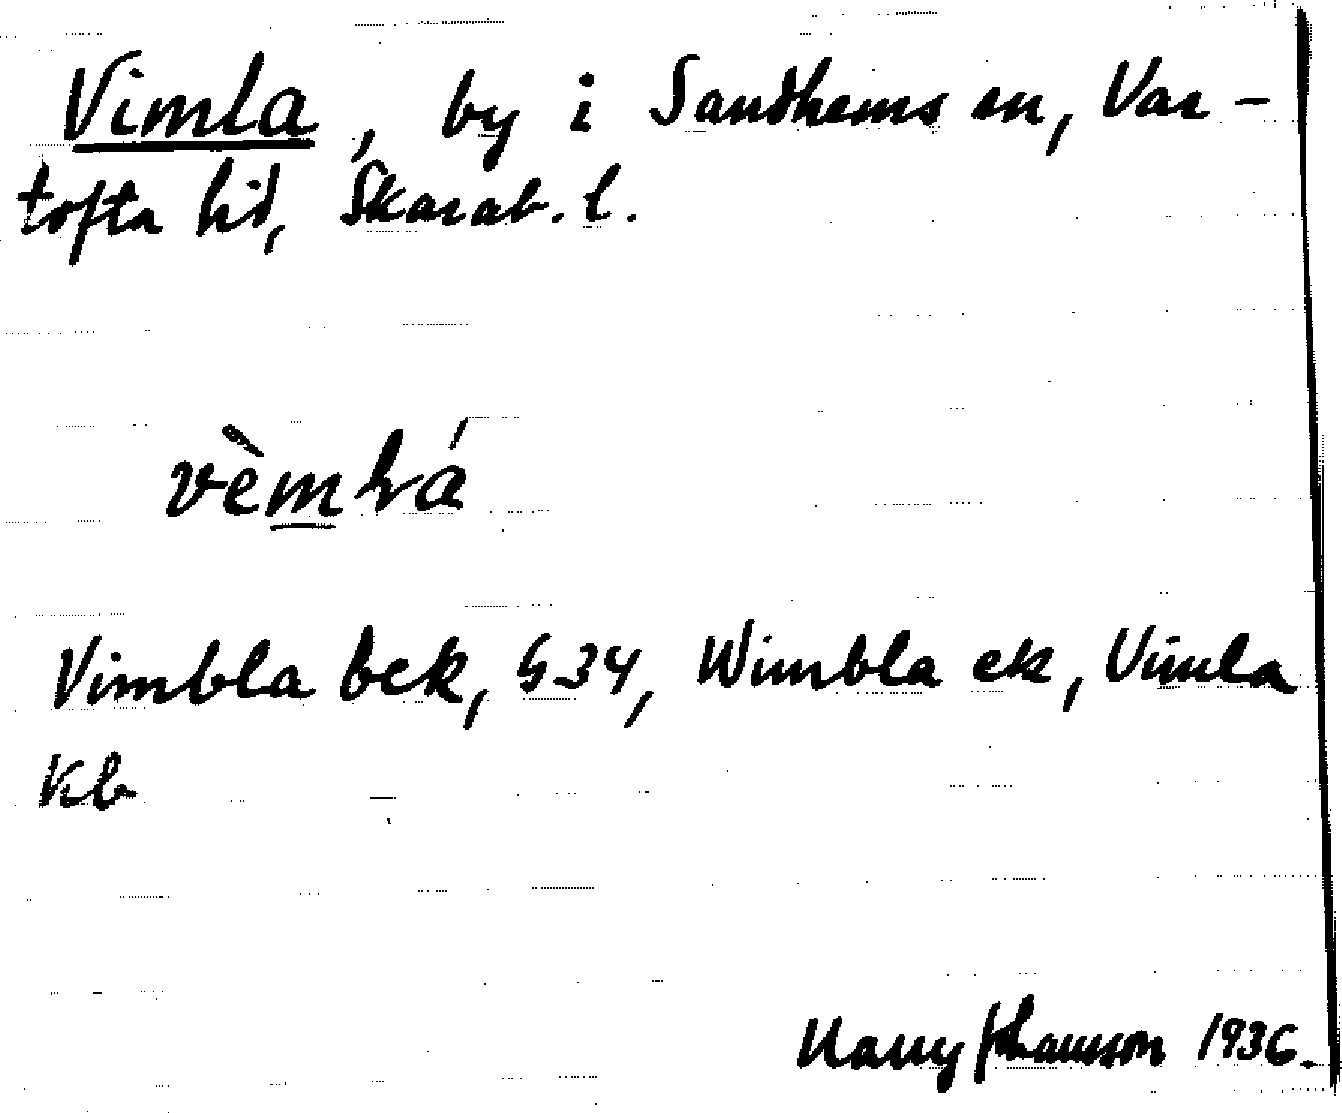 Vimla, by i Sandhems sn, Var-
tofta hd, Skarab. l.
vèmlá
Vimbla bek, G34, Wimbla ek, Vimla
kb
Harry Johansson 1936.